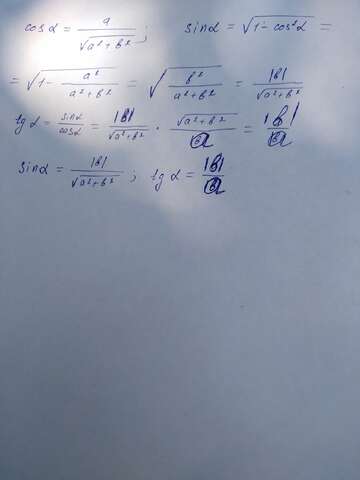 cosα = a/√(a²+b²); sinα = √(1-cos²α) =
= √(1 - a²/(a²+b²)) = √(b²/(a²+b²)) = |b|/√(a²+b²)
tgα = sinα/cosα = |b|/√(a²+b²) · √(a²+b²)/a = |b|/a
sinα = |b|/√(a²+b²); tgα = |b|/a